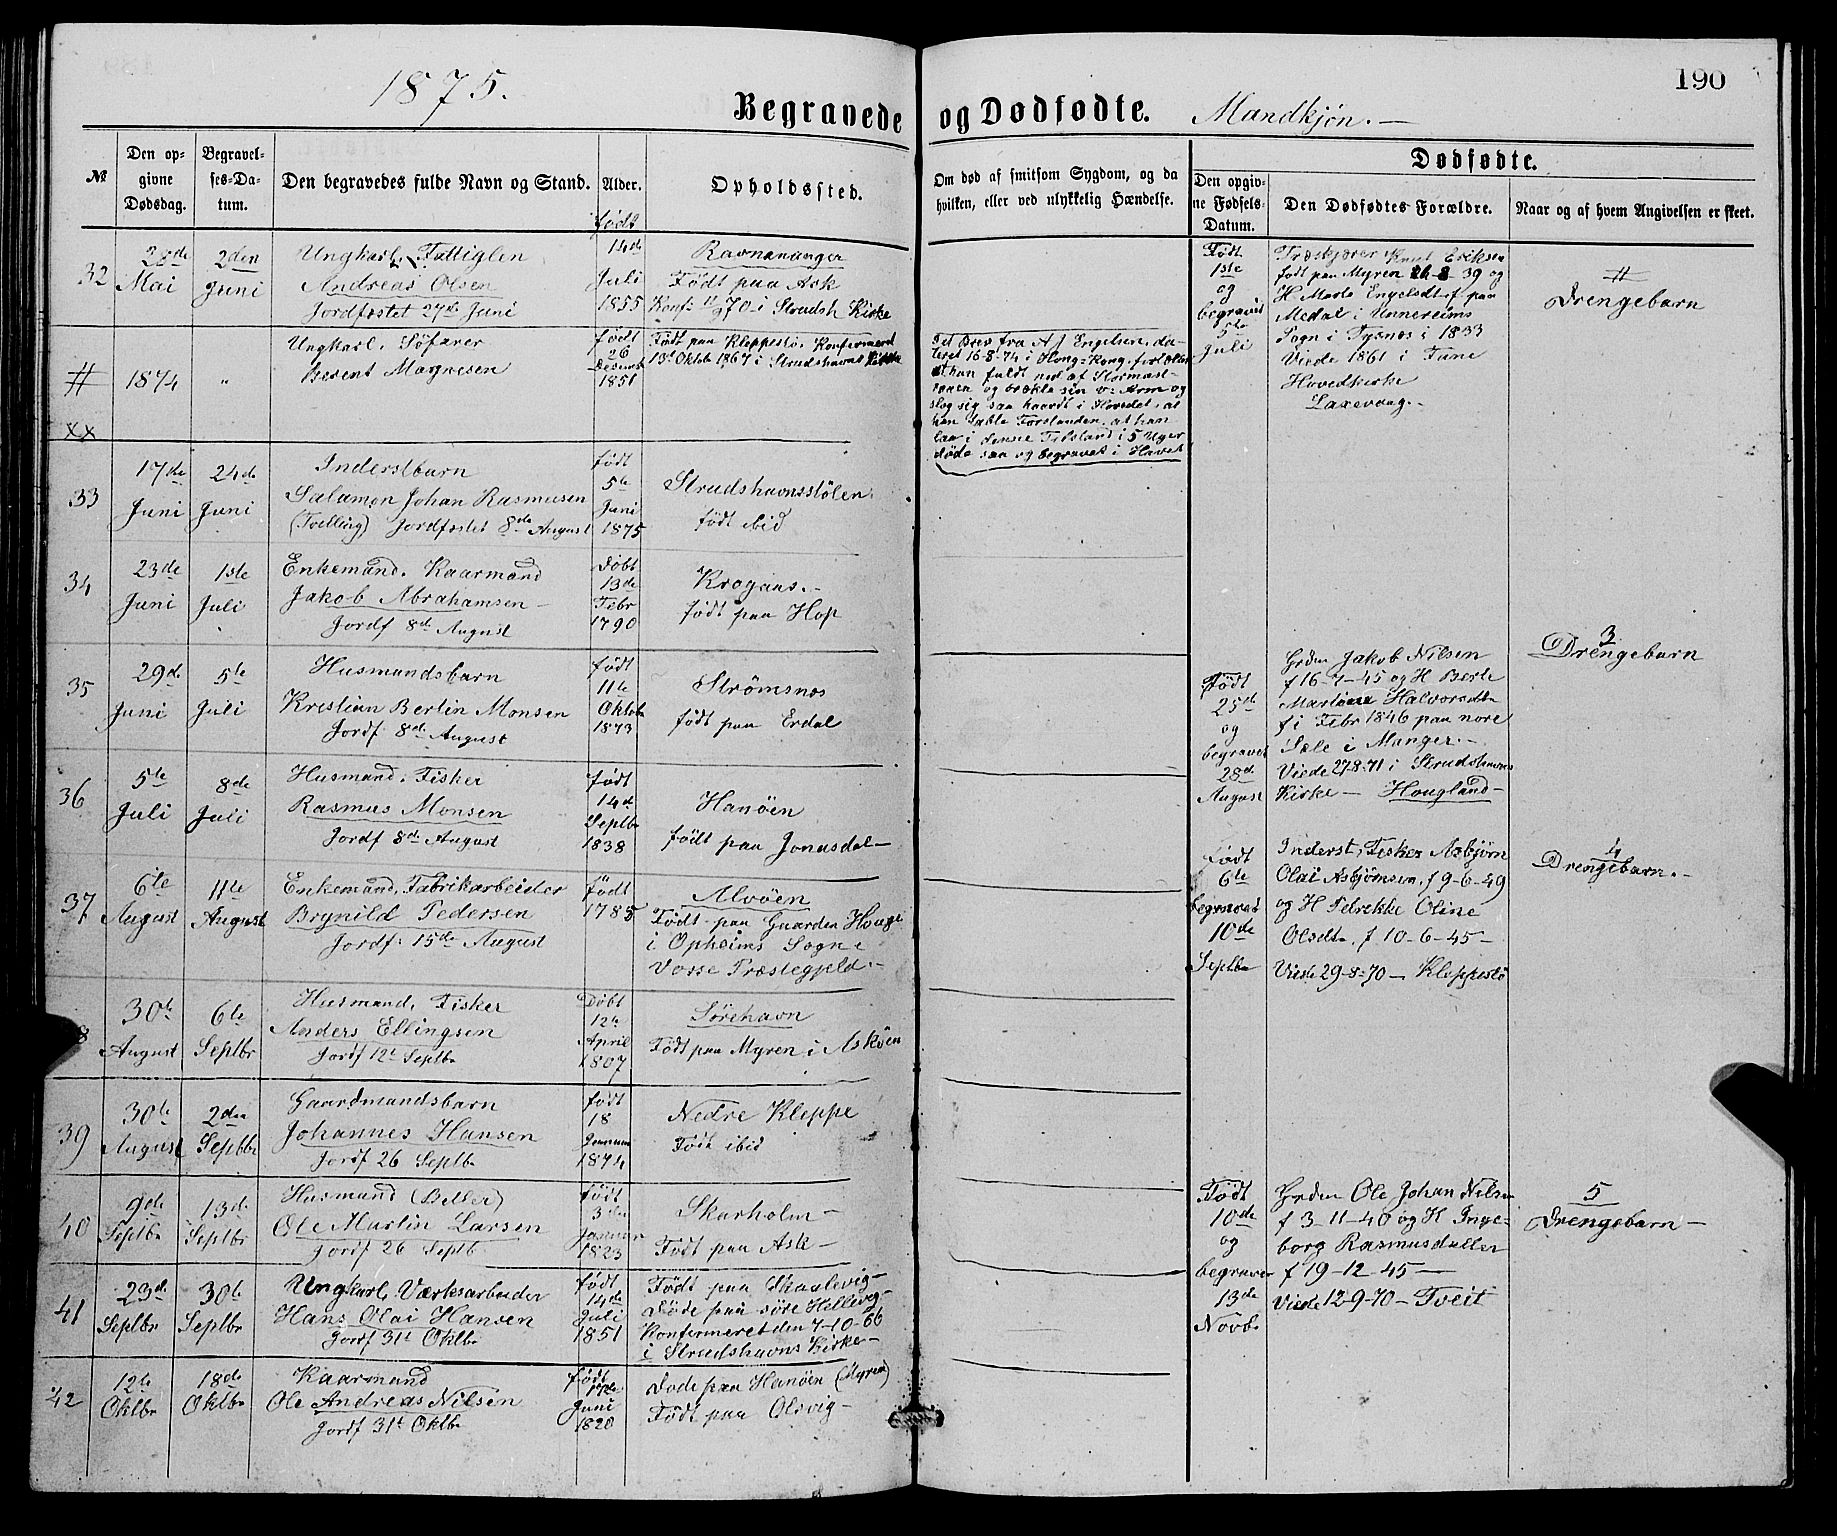 1875.
190
Begravede og Dødfødte. Mandkjøn.—
№
Den opgivne Dødsdag.
Begravelses-Datum.
Den begravedes fulde Navn og Stand.
Alder.
født
Opholdssted.
Om død af smitsom Sygdom, og da
hvilken, eller ved ulykkelig Hændelse.
Dødfødte.
Den opgivne Fødsels-Datum.
Den Dødfødtes Forældre.
Naar og af hvem Angivelsen er skeet.
32
28de Mai
2den Juni
Ungkarl, Fattiglem
Andreas Olsen
Jordfæstet 27de Juni
14de
Juli
1855
Ravnananger
Født paa Ask
Konf: 11/9 70 i Strudsh Kirke
#
1874
"
Ungkarl, Søfarer
Berent Magnesen
født
26
Decemb
1851
Født paa Kleppestø, Konfirmeret
13de Oktob 1867 i Strudshavns Kirke
xx
Brev fra A J Engelsen, da-
teret 16-8-74 i Hong-Kong,
han faldt ned af Stormast-
raaen og brækte sin v: Arm og
slog sig saa haardt i Hovedet, at
han tabte Forstanden, at han
laa i denne Tilstand i 5 Uger
døde saa og begravet i Havet
33
17de Juni
24de Juni
Inderstbarn
Salamon Johan Rasmusen
(Tvelling) Jordfæstet 8de August
født
5te
Juni
1875
Strudshavnsstølen
født ibid
34
23de Juni
1ste Juli
Enkemand. Kaarmand
Jakob Abrahamsen —
Jordf 8de August
Døbt
13de
Febr
1790
Krogaas.—
født paa Hop
35
29de Juni
5te Juli
Husmandsbarn
Kristian Bertin Monsen
Jordf 8de August
født
11te
Oktob
1873
Strømsnes
født paa Erdal
36
5te Juli
8de Juli
Husmand, Fisker
Rasmus Monsen
Jordf 8de August
født
14de
Septbr
1838
Hanøen
født paa Jonasdal —
37
6te August
11te August
Enkemand, Fabrikarbeider
Brynild Pedersen
Jordf: 15de August
født
1785
Alvøen
Født paa Gaarden Houge
i Opheims Sogne
Vosse Præstegjeld.—
8
30te August
6te Septbr
Husmand, Fisker
Anders Ellingsen
Jordf 12te Septbr
Døbt
12te
April
1807
Sørehavn
Født paa Myren i Askøen
39
30te August
2den Septbr
Gaardmandsbarn
Johannes Hansen
Jordf 26 Septbr
født
18
Januar
1874
Nedre Kleppe
Født ibid
40
9de Septbr
13de Septbr
Husmand (Betler)
Ole Martin Larsen
Jordf 26 Septb
født
3die
Januar
1823
Skarholm —
Født paa Ask —
41
23de Septbr
30te Septbr
Ungkarl, Værksarbeider
Hans Olai Hansen
Jordf 31te Oktbr
født
14de
Juli
1851
Født paa Skaalevig —
Døde paa søre Hellevig —
Konfirmeret den 7-10-66
i Strudshavns Kirke —
42
12te Oktbr
18de Oktbr
Kaarmand
Ole Andreas Nilsen
Jordf 31te Oktbr
født
17de
Juni
1820
Døde paa Hanøen (Myren)
Født paa Olsvig —
Født
1ste
og
begravet
5te
Juli
Træskjærer Knut Eriksen
født paa Myren 39 og
H. Marta Engelsdtr f paa
Medal i Unnereims
Sogn i Tysnes i 1833
Viede 1861 i Fane
Hovedkirke
Laxevaag.—
#
Drengebarn
Født
25de
og
begravet
28de
August
Grden Jakob Nilsen
f 16-7-45 og H Berte
Martine Halvorsdtr
f i Febr 1846 paa nore
Sæle i Manger.—
Viede 27-8-71 i Strudshavns
Kirke — Hougland —
3
Drengebarn
Født
6te
begravet
10de
Septbr
Inderst, Fisker Asbjørn
Olai Asbjørnsen, f 9-6-49
og H Petrekke Oline
Olsdtr. f 10-6-45 —
Viede 29-8-70 — Kleppestø
4
Drengebarn.—
Født
10de
og
begravet
13de
Novbr
Grden Ole Johan Nilsen
f 3-11-40 og H Inge-
borg Rasmusdatter
f 19-12-45 —
Viede 12-9-70 — Tveit
5
Drengebarn —